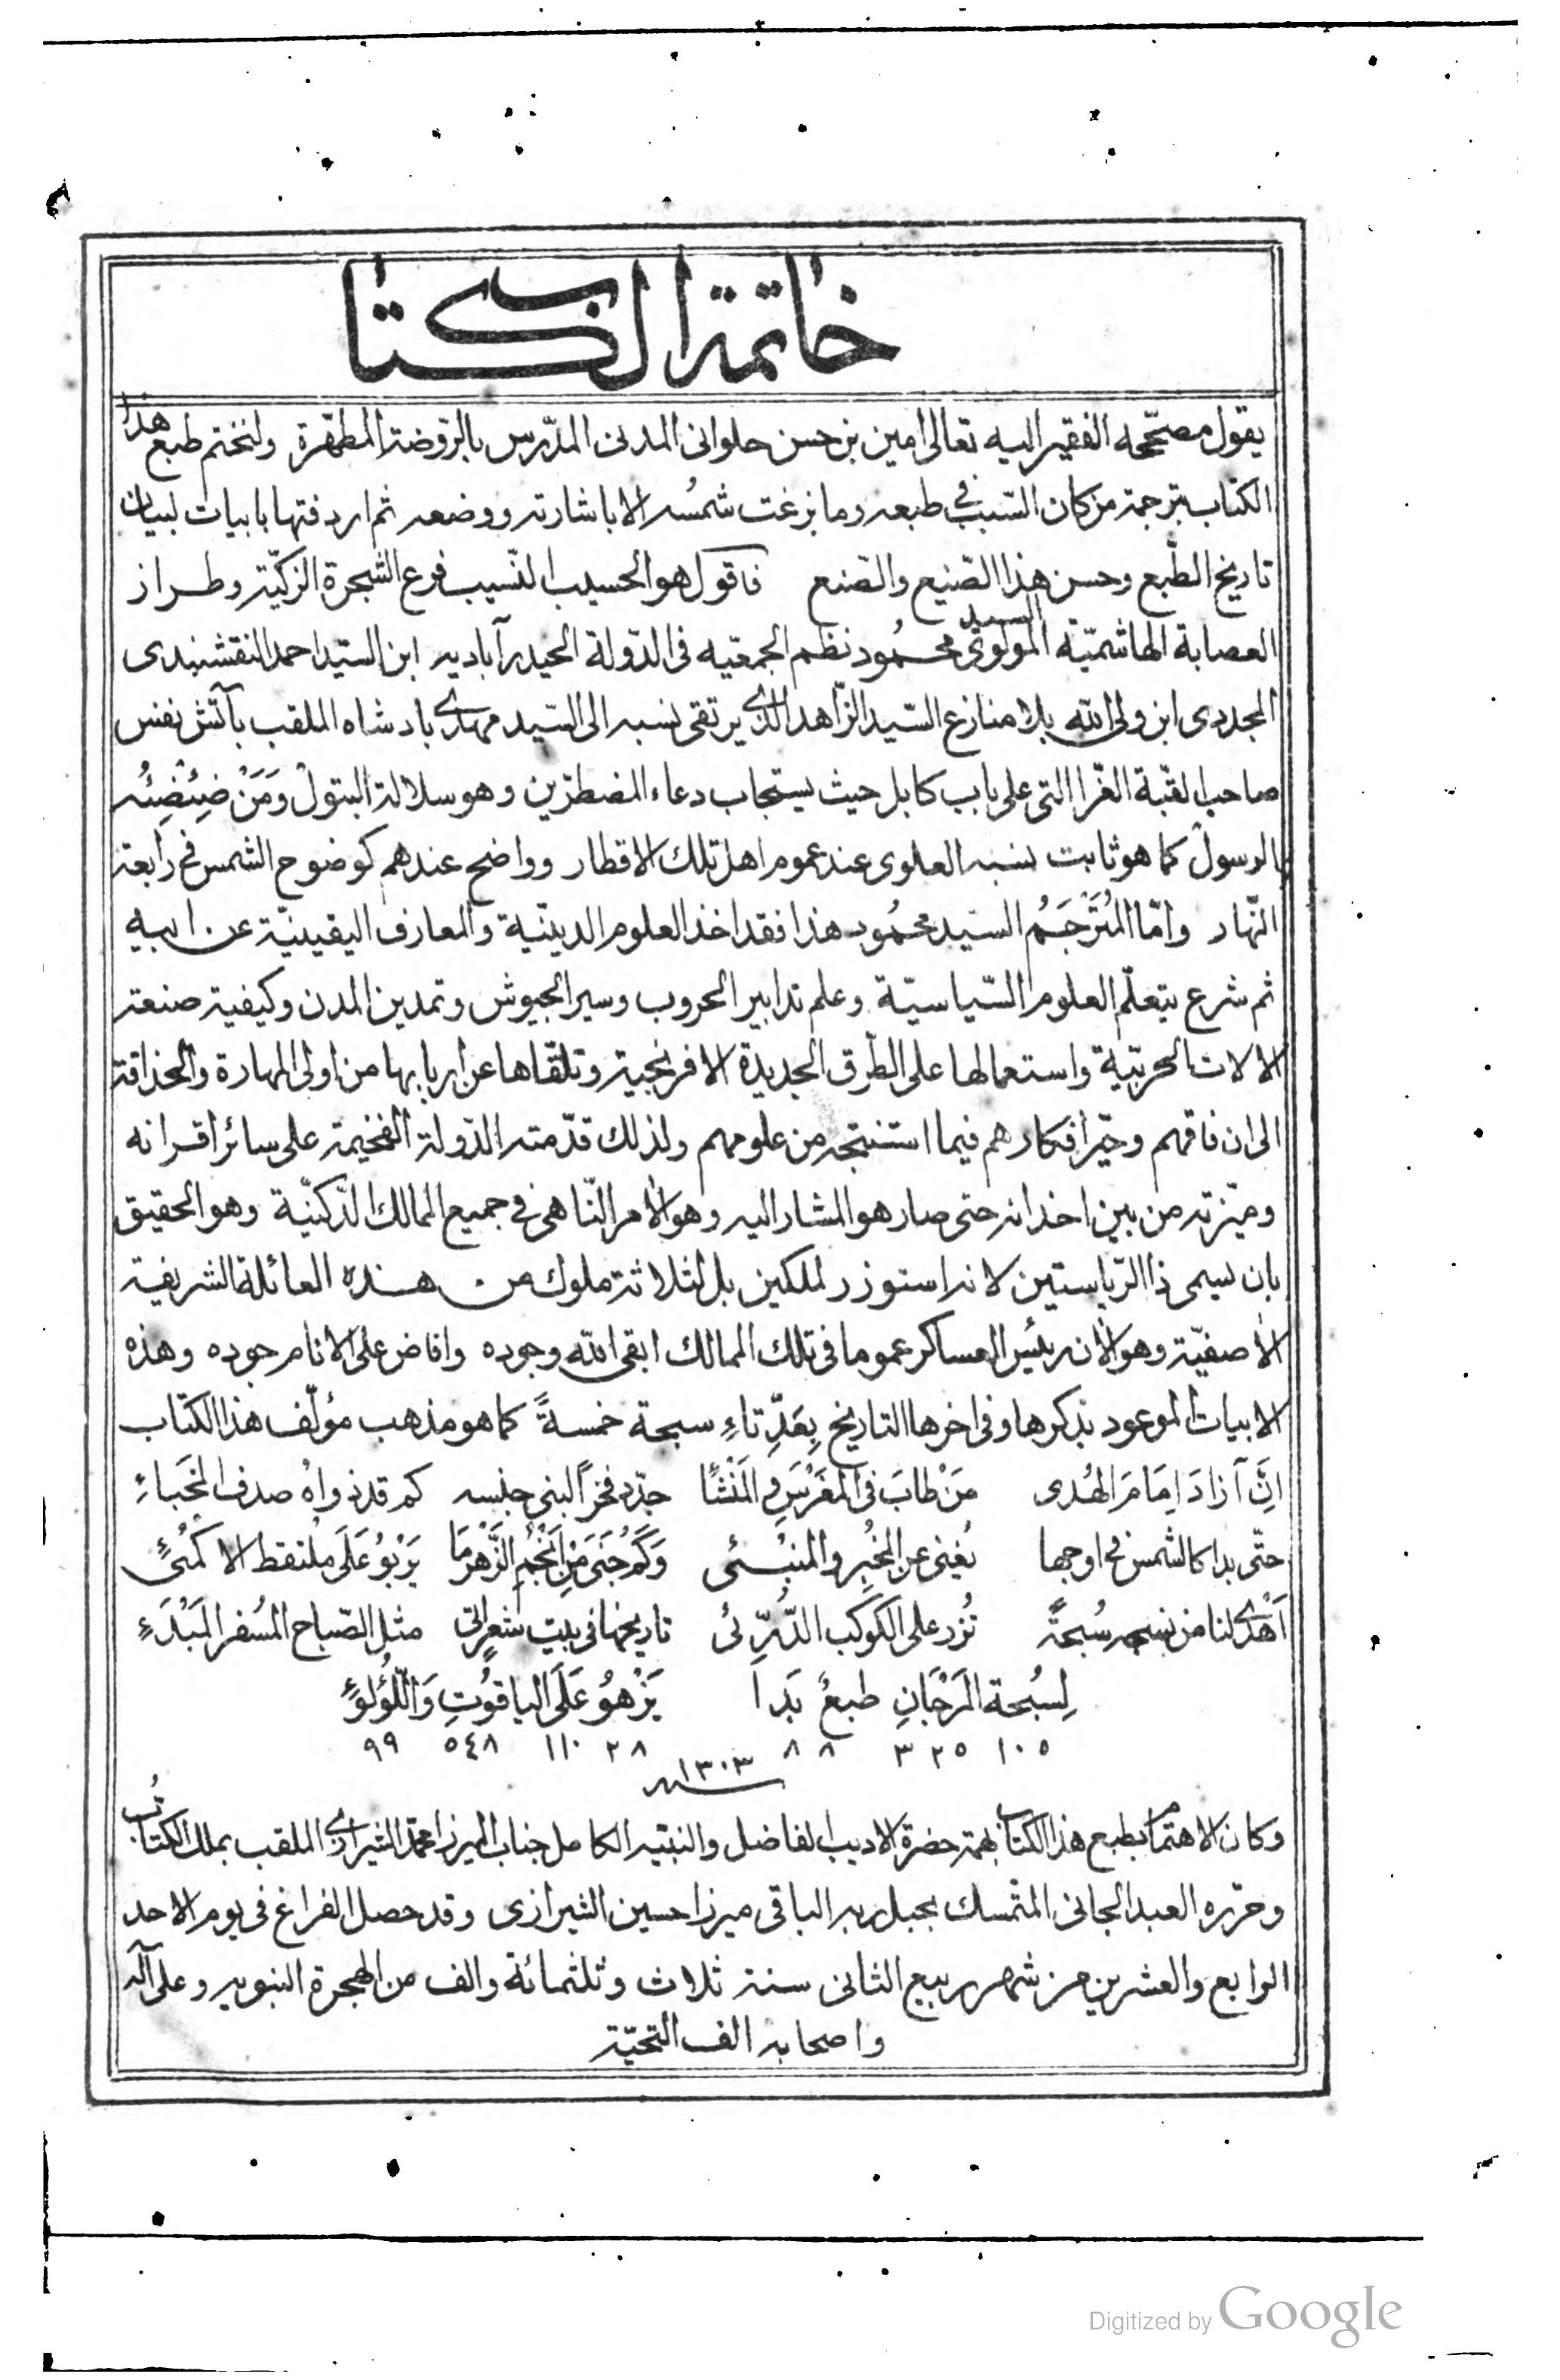 خاتمة الكتاب
يقول مصححه الفقير اليه تعالى امين بن حسن حلوانى المدنى المدرّس بالرّوضة المطهّرة ولنختم طبع هذا
الكتاب بترجمة من كان السّبب فى طبعه وما بزغت شمسُه الا باشارته ووضعه ثم اردفتها بابيات لبيان
تاريخ الطّبع وحسن هذا الصّنيع والصّنع فاقول هو الحسيب النّسيب فرع الشّجرة الزكيّة وطراز
العصابة الهاشميّة المولوى السيد محمُود نظم الجمعّيه فى الدّولة الحيدرآباديه ابن السيّد احمد النقشبندى
المجددى ابن ولى الله بلا منازع السّيد الزّاهد الّذى يرتقى نسبه الى السّيد مهدى بادشاه الملقب بآتش نفس
صاحب القبّة الغّرا التى على باب كابل حيث يستجاب دعاء المضطرّين وهو سلالة البتول وَمَنْ ضِئْضِئُه
الرسول كما هو ثابت نسبه العلوى عند عموم اهل تلك الاقطار وواضح عندهم كوضوح الشمس فى رابعة
النّهار وامّا المُتَرْجَمُ السّيد محمُود هذا فقد اخذ العلوم الدينيّة والمعارف اليقينيّة عن ابيه
ثم شرع يتعلّم العلوم السّياسيّة وعلم تدابير الحروب وسير الجيوش وتمدين المدن وكيفية صنعة
الالات الحربيّة واستعمالها على الطّرق الجديدة الافرنجية وتلقّاها عن اربابها من اولى المهارة والحذاقة
الى ان فاقهم وحيّر افكارهم فيما استنتجه من علومهم ولذلك قدّمته الدّولة الفخيمة على سائر اقرانه
وميّزته من بين اخدانه حتى صار هو المشار اليه وهو الأمر النّاهى فى جميع الممالك الدّكنيّة وهو الحقيق
بان يسمى ذا الرّياستين لانه استوزر لملكين بل لثلاثة ملوك من هذه العائلة الشريفة
الأصفيّة وهو الأن رئيس العساكر عموما فى تلك الممالك ابقى الله وجوده وافاض على الانام جوده وهذه
الابيات الموعود بذكرها وفى اخرها التاريخ بِعَدِّ تاءِ سبحة خمسةً كما هو مذهب مؤلّف هذا الكتاب
انَّ آزادَ اِمَامَ الهُدى مَنْ طابَ فى المَغْرَسِ والمَنْشَا جدّد فخراً لبنى جنسه كم قدزواهُ صدف المخَباءِ
حتّى بدا كالشمس فى اوجها يُغنى عن المُخْبِر والمنبْئى وَكَمْ جَنىَ مِنْ اَنْجُمِ الزَّهْرِ مَا يَرْبُو عَلَى ملتقط الاكمُئٍ
اَهْدى لنا من نسجه سُبحةً تُزرِ على الكوكب الدُّرّئى تاريخها فى بيت شعرٍ اتى مثل الصّباح المُسْفر المَبْدَءِ
لِسُبحة المَرْجَانِ طبعٌ بَدا يَزْهوُ عَلَى الياقوُتِ وَاللّؤلؤِ
١٠٥ ٣٢٥ ٨٨ ٢٨ ١١٠ ٥٤٨ ٩٩
سنه ١٣٠٣
وكان الاهتمام بطبع هذا الكتاب بهمة حضرة الاديب الفاضل والنبيه الكامل جناب الميرزا محمّد الشيرازى الملقب بملك الكتّاب
وحرّره العبد الجانى المتمسك بحبل ربه الباقى ميرزا حسين الشيرازى وقد حصل الفراغ فى يوم الاحد
الرابع والعشرين من شهر ربيع الثانى سنة ثلاث وثلثمائة والف من الهجرة النبويه وعلى آله
واصحابه الف التحيّة
Digitized by Google